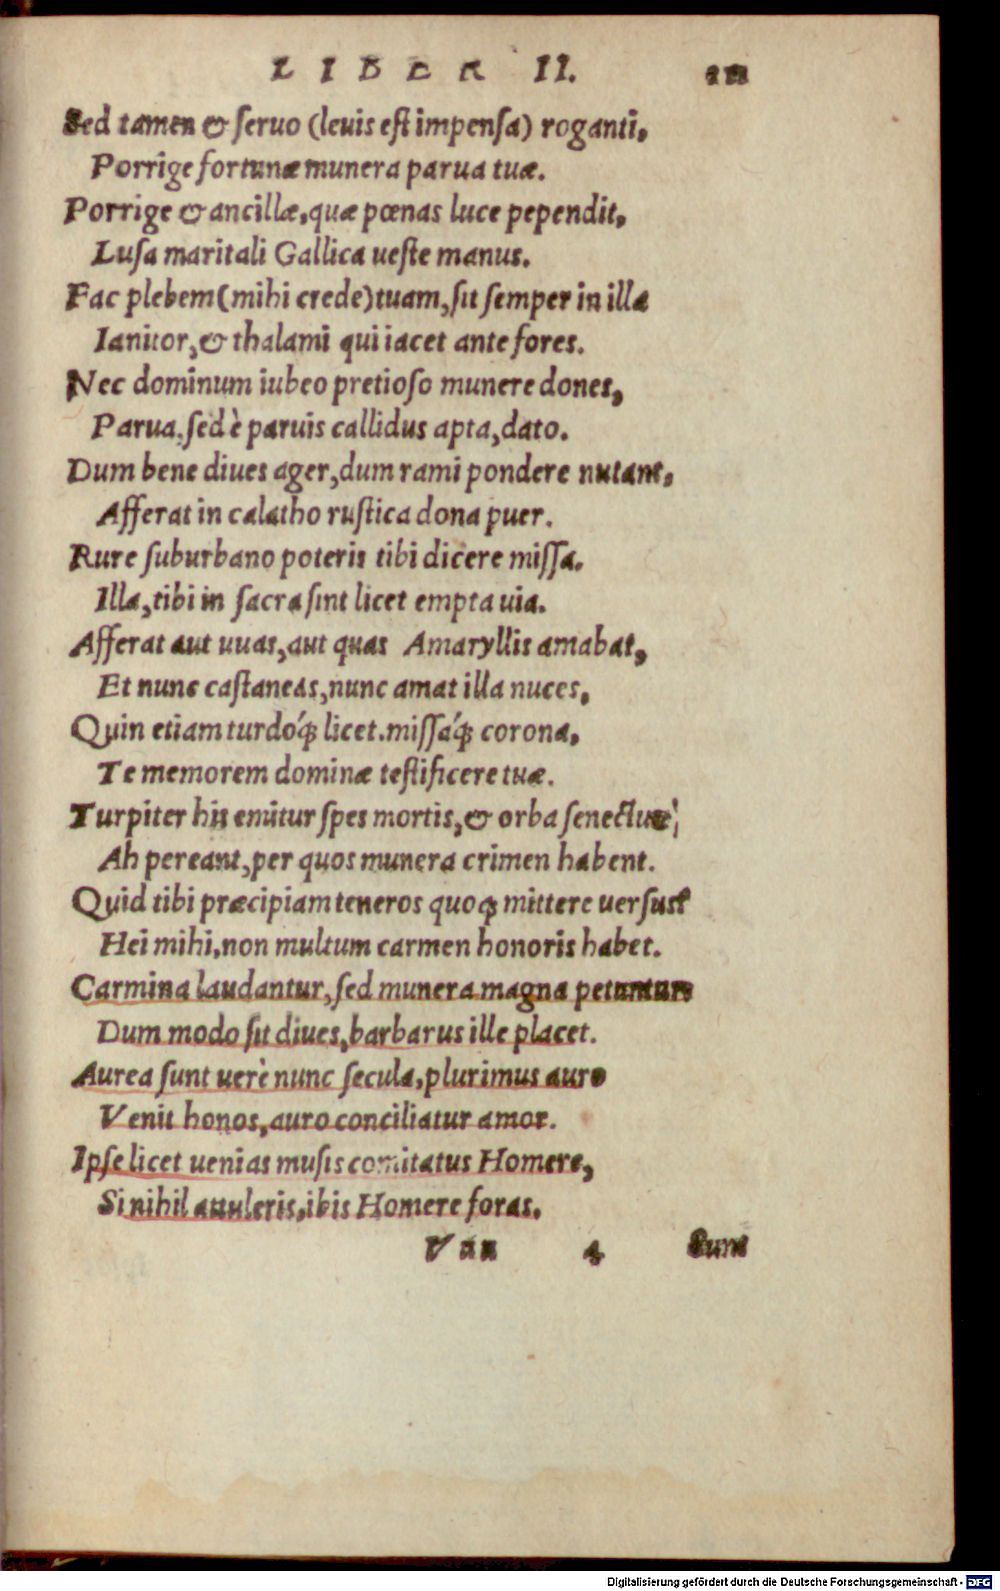 LIBER II.
Sed tamen & seruo (leuis est impensa) roganti,
Porrige fortunæ munera parua tuæ.
Porrige & ancillæ, quæ pœnas luce pependit,
Lusa maritali Gallica ueste manus.
Fac plebem (mihi crede) tuam, sit semper in illa
Ianitor, & thalami qui iacet ante fores.
Nec dominum iubeo pretioso munere dones,
Parua. sed è paruis callidus apta, dato.
Dum bene diues ager, dum rami pondere nutant,
Afferat in calatho rustica dona puer.
Rure suburbano poteris tibi dicere missa.
Illa, tibi in sacra sint licet empta uia.
Afferat aut uuas, aut quas Amaryllis amabat,
Et nunc castaneas, nunc amat illa nuces,
Quin etiam turdóq; licet. missáq; corona,
Te memorem dominæ testificere tuæ.
Turpiter his emitur spes mortis, & orba senectus,
Ah pereant, per quos munera crimen habent.
Quid tibi præcipiam teneros quoq; mittere uersus?
Hei mihi, non multum carmen honoris habet.
Carmina laudantur, sed munera magna petuntur:
Dum modo sit diues, barbarus ille placet.
Aurea sunt uerè nunc secula, plurimus auro
Venit honos, auro conciliatur amor.
Ipse licet uenias musis comitatus Homere,
Si nihil attuleris, ibis Homere foras.
4 Sunt
Digitalisierung gefördert durch die Deutsche Forschungsgemeinschaft - DFG